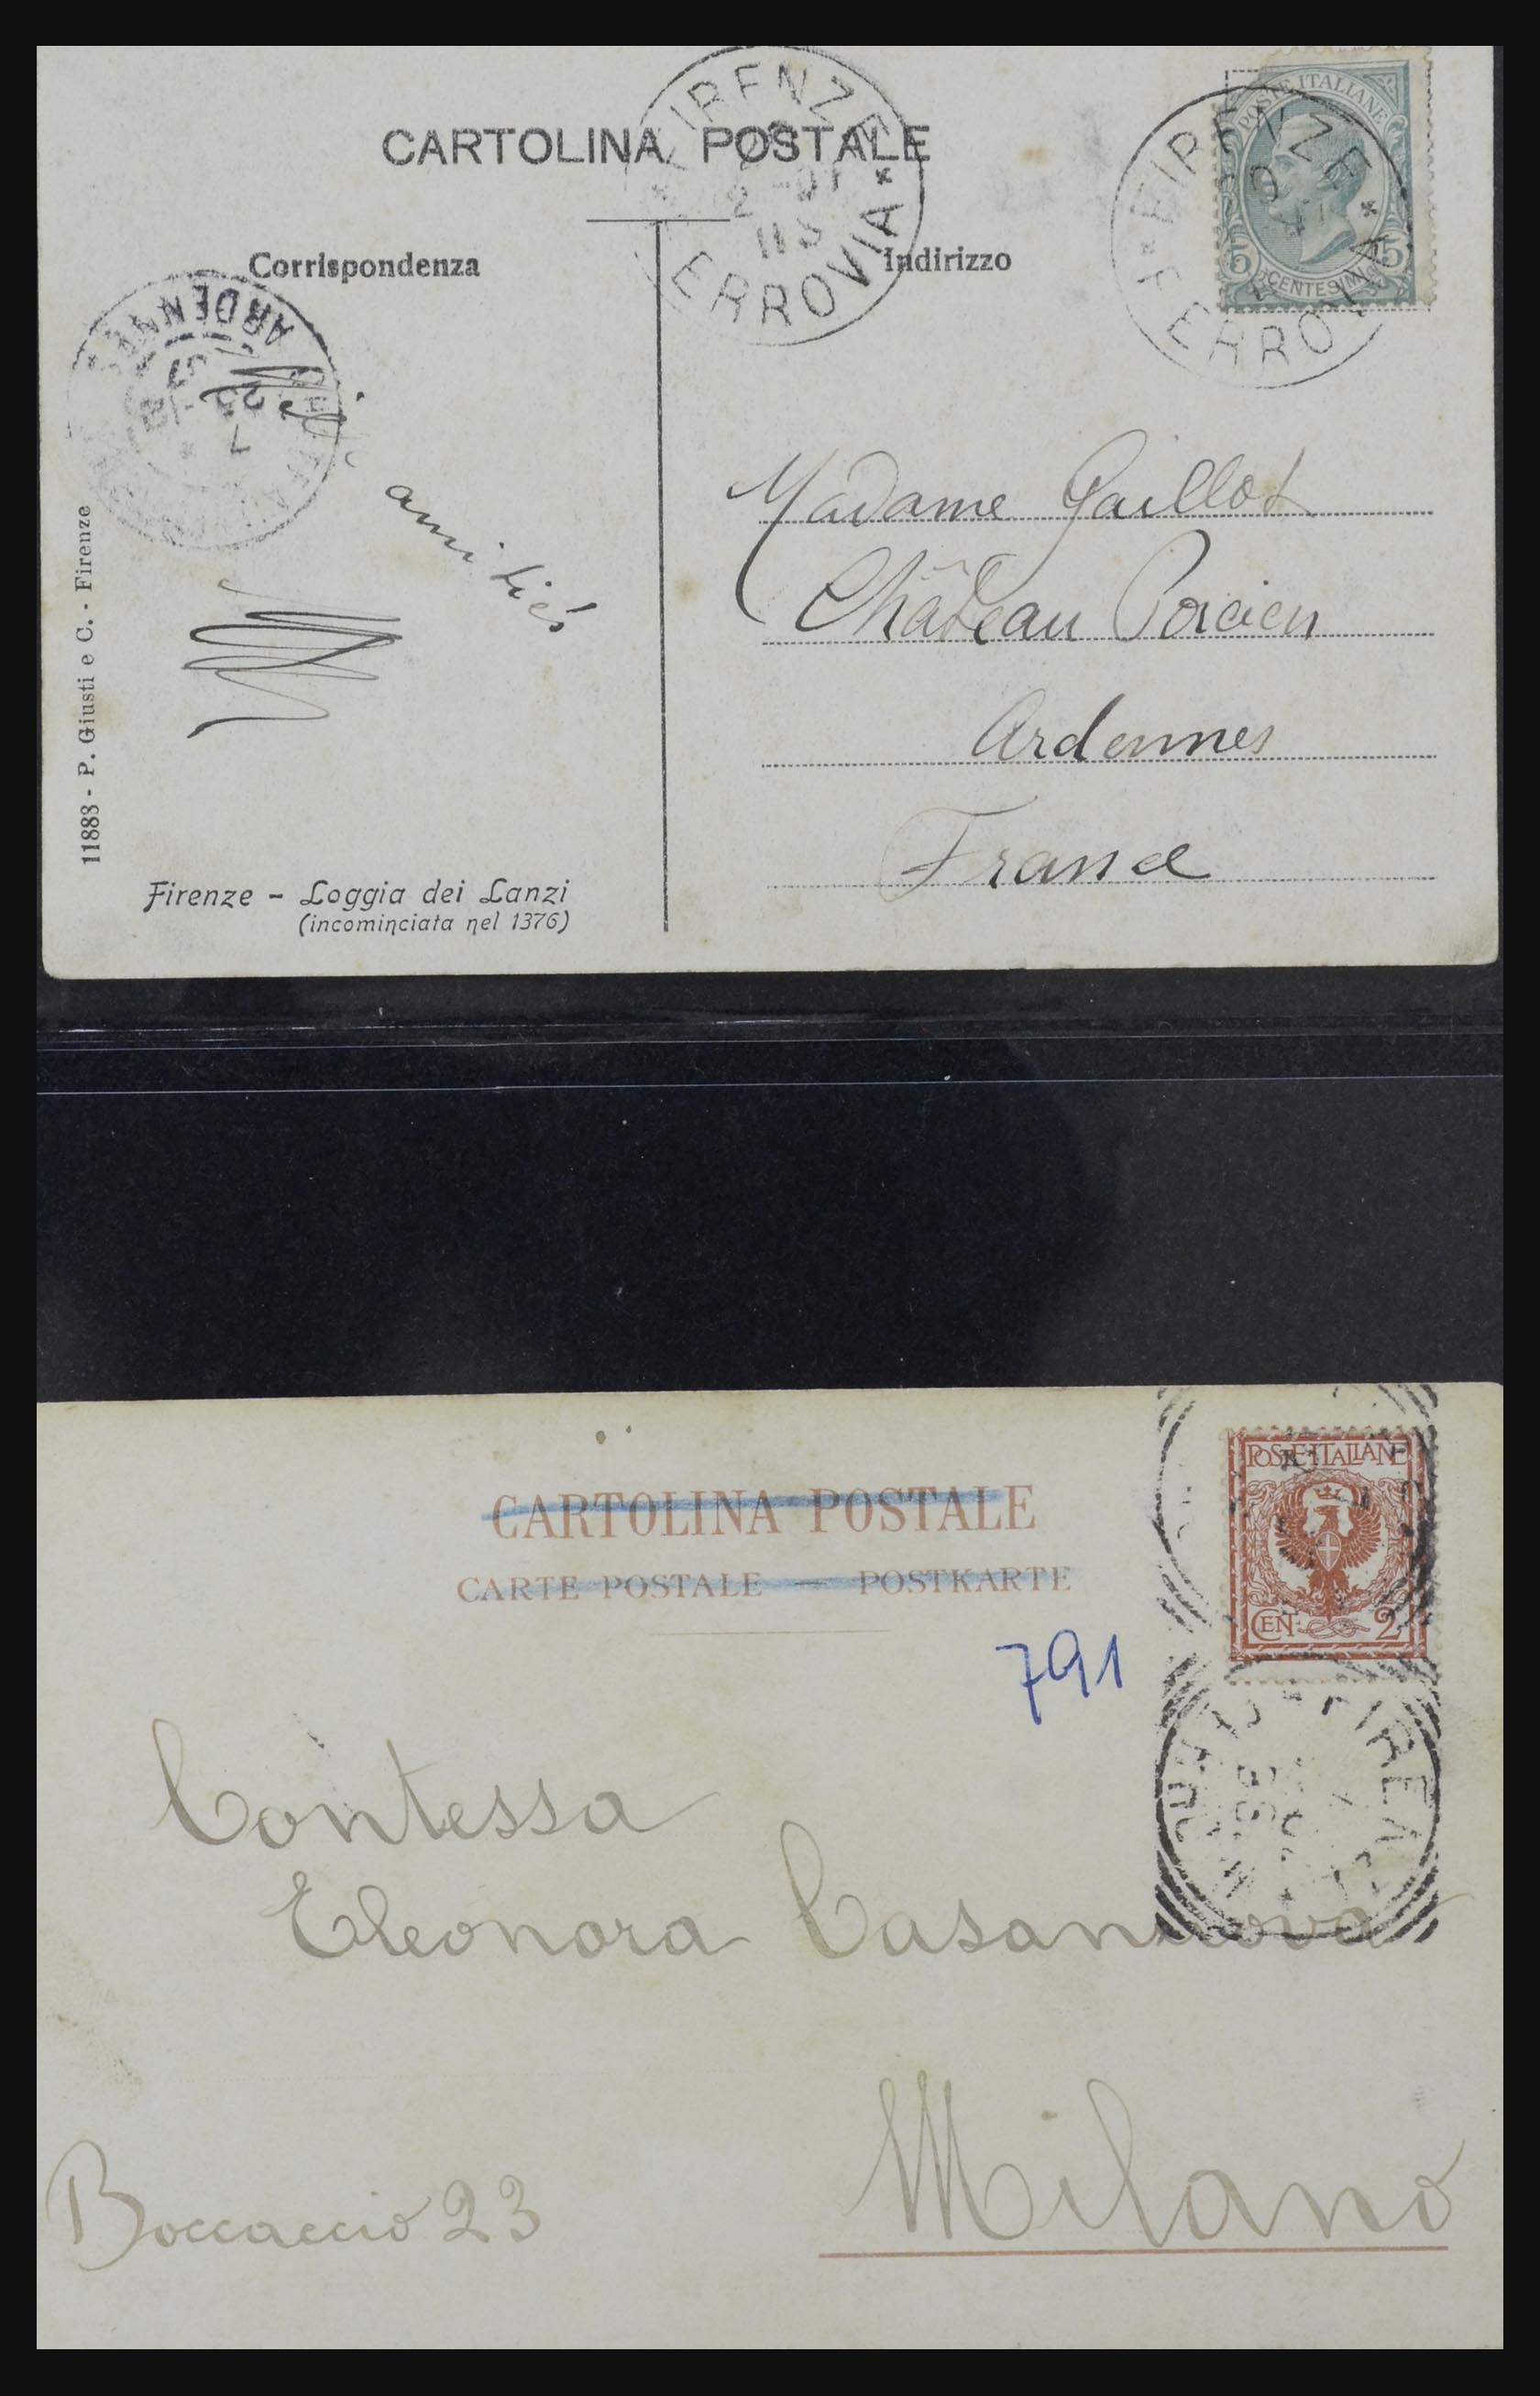 CARTOLINA POSTALE
FIRENZE
FERROVIA
POSTE ITALIANE
5 CENTESIMI 5
FIRENZE
FERROVIA
Corrispondenza
Indirizzo
ARDENNES
amitiés
Madame Gaillot
Château Porcien
Ardennes
France
11883 - P. Giusti e C. - Firenze
Firenze - Loggia dei Lanzi
(incominciata nel 1376)
POSTE ITALIANE
CEN. 2
CARTOLINA POSTALE
CARTE POSTALE — POSTKARTE
791
Contessa
Eleonora Casanova
Milano
Boccaccio 23